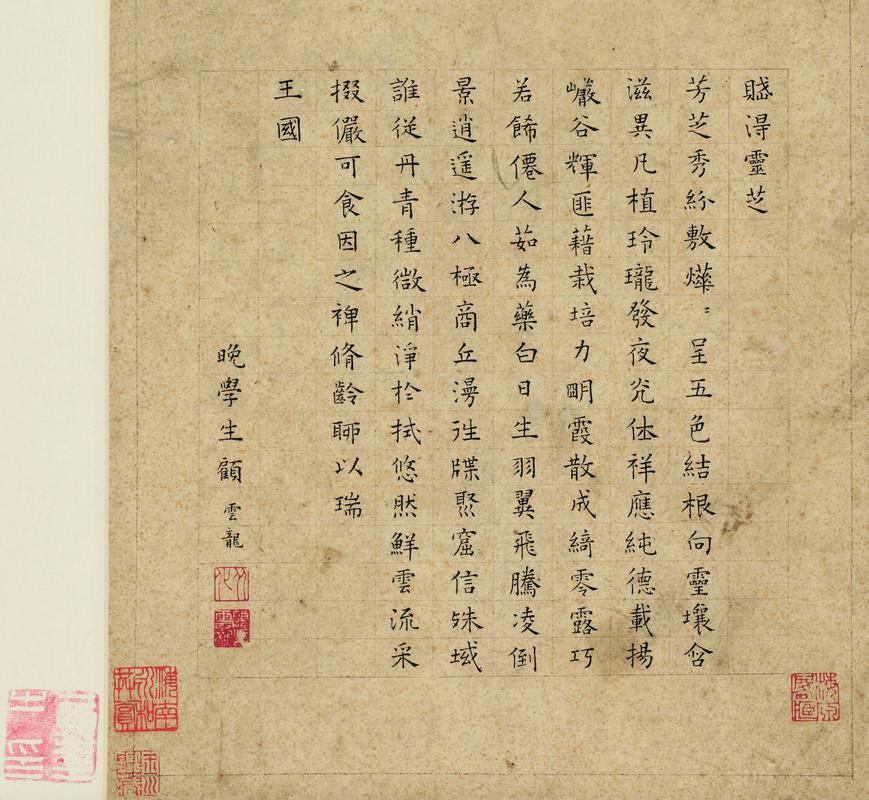 賦得靈芝
芳芝秀紛敷燁〻呈五色結根向靈壤含
滋異凡植玲瓏發夜光休祥應純德載揚
巖谷輝匪藉栽培力明霞散成綺零露巧
若餙僊人茹為藥白日生羽翼飛騰凌倒
景逍遥游八極商丘漫徃牒聚窟信殊域
誰從丹青種微綃淨於拭悠然鮮雲流采
掇儼可食因之裨脩齡聊以瑞
王國
晚學生顧雲龍